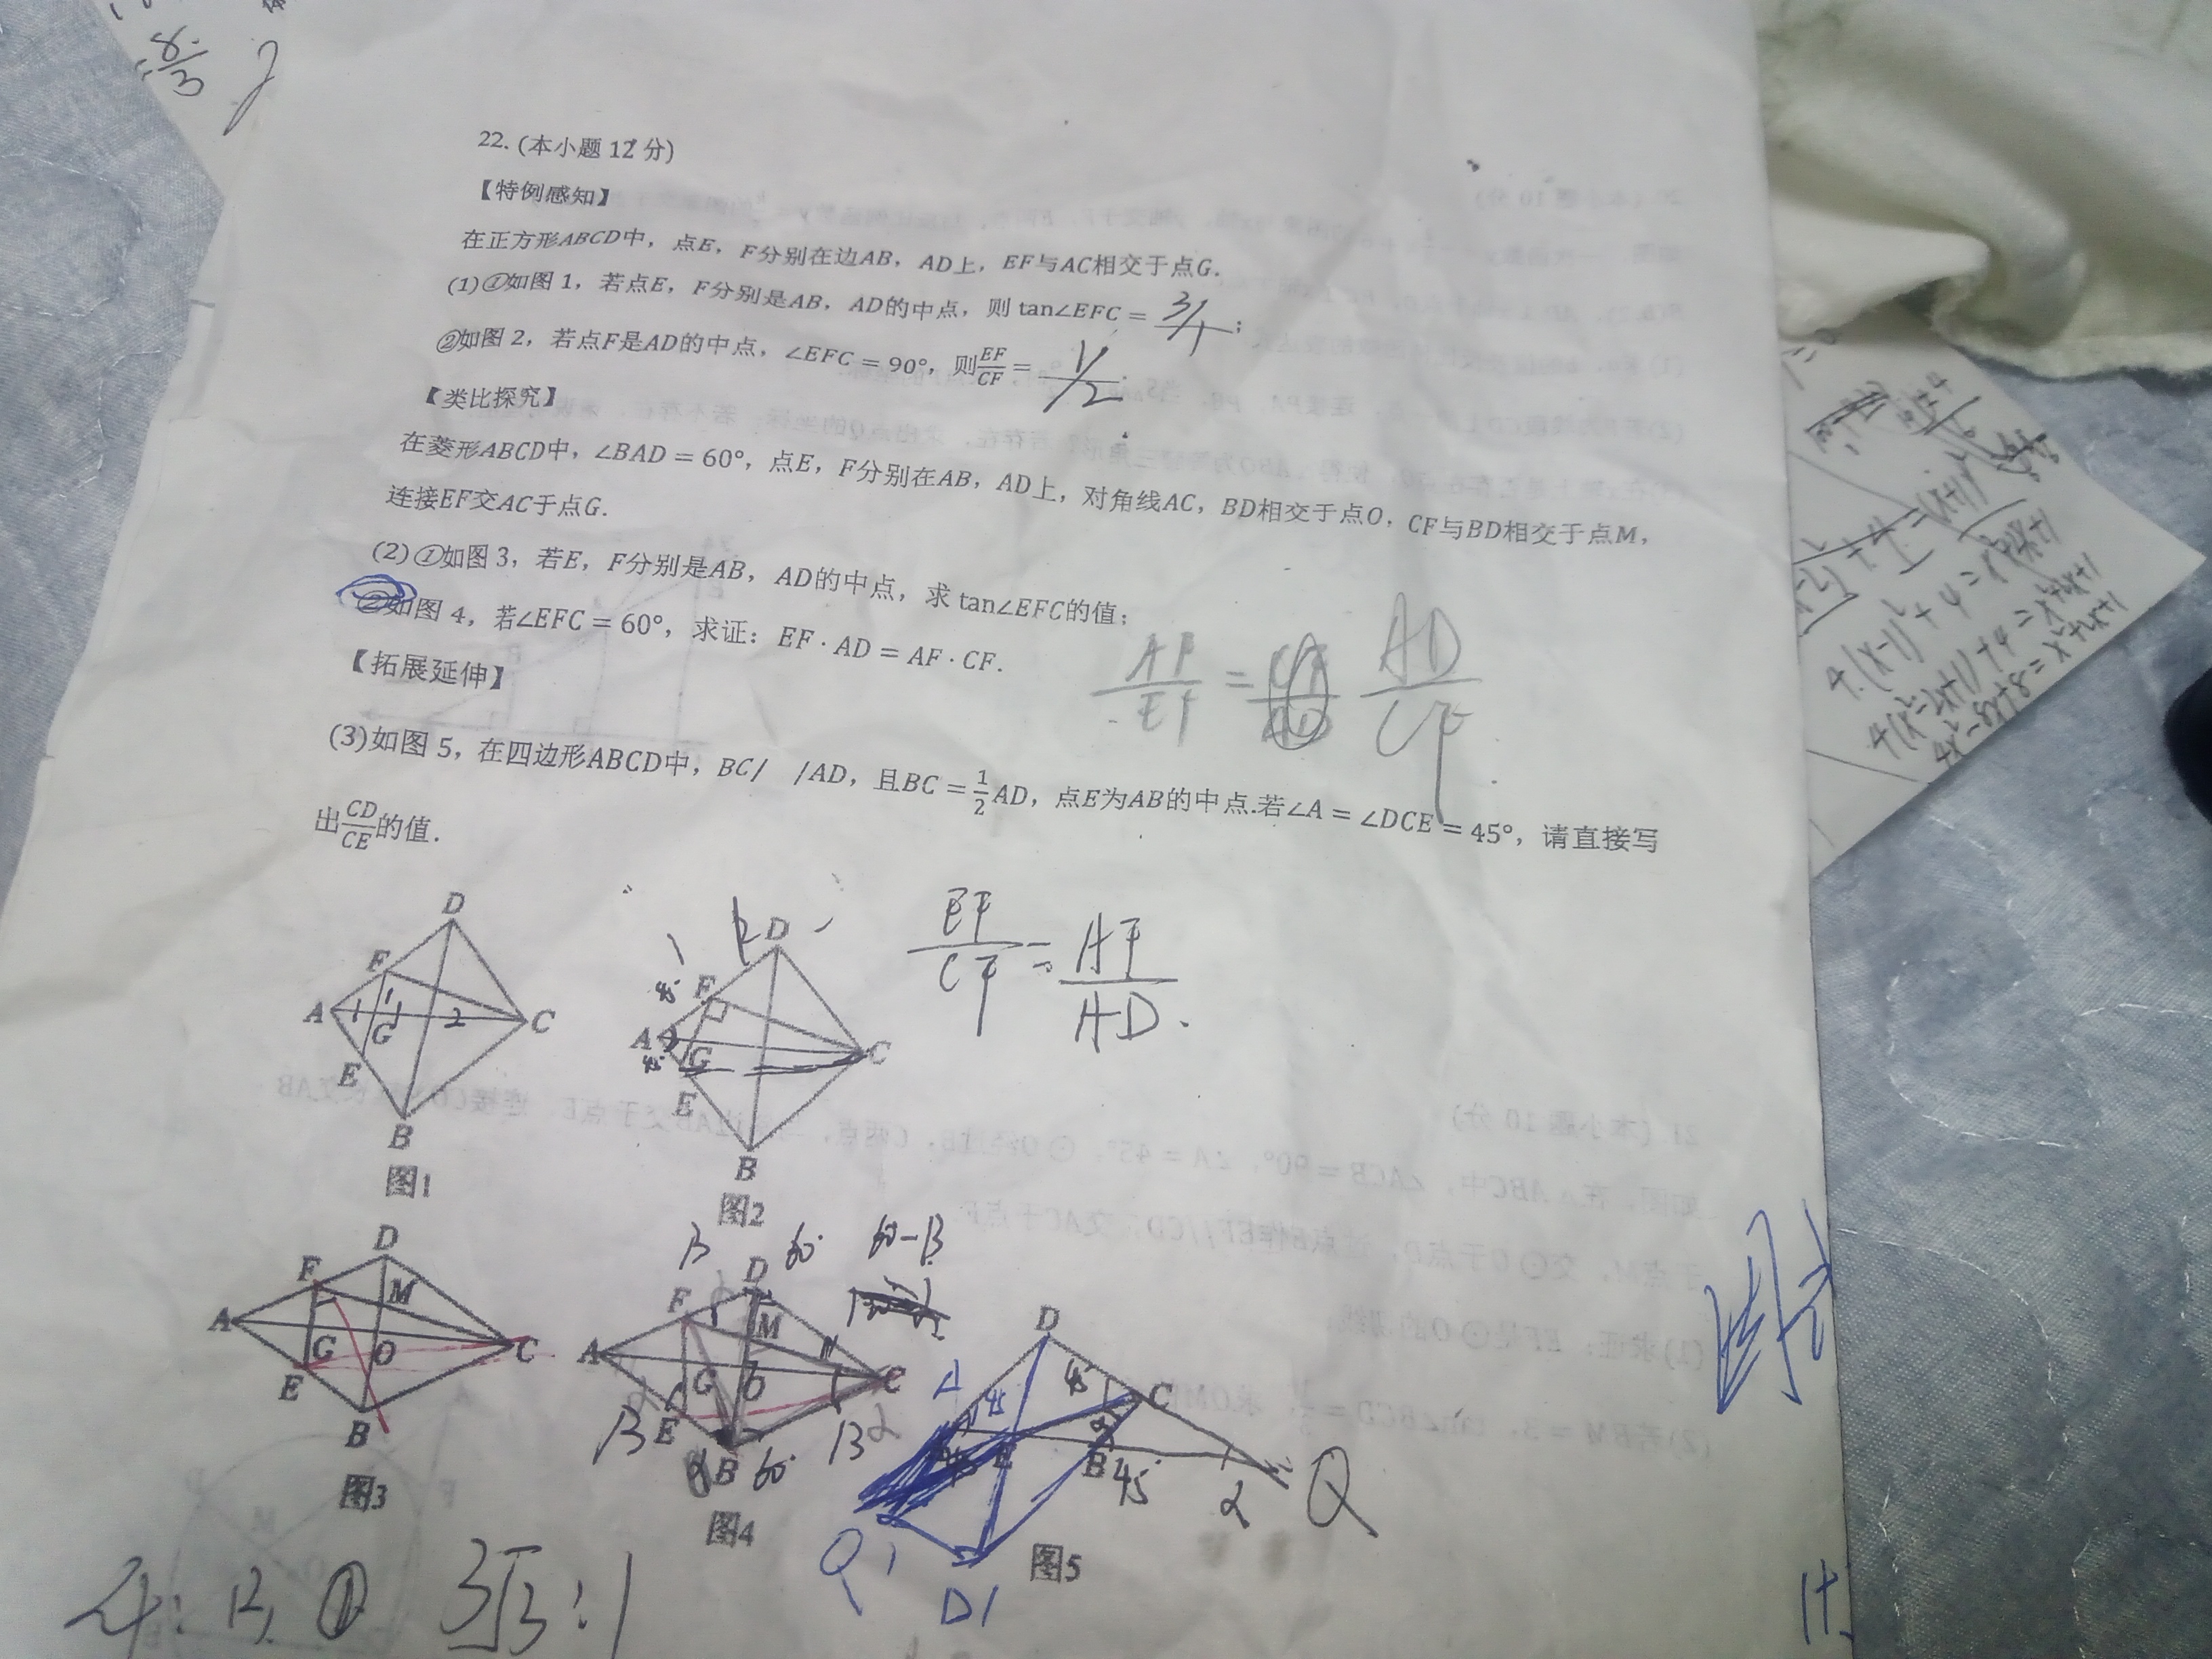 8
3
22. (本小题 12 分)
【特例感知】
在正方形ABCD中，点E，F分别在边AB，AD上，EF与AC相交于点G.
(1)①如图 1，若点E，F分别是AB，AD的中点，则 tan∠EFC = 3/1 ;
②如图 2，若点F是AD的中点，∠EFC = 90°，则EF/CF = 1/2 .
【类比探究】
在菱形ABCD中，∠BAD = 60°，点E，F分别在AB，AD上，对角线AC，BD相交于点O，CF与BD相交于点M，
连接EF交AC于点G.
(2)①如图 3，若E，F分别是AB，AD的中点，求 tan∠EFC的值；
②如图 4，若∠EFC = 60°，求证：EF · AD = AF · CF.
AF/EF = AD/CF
【拓展延伸】
(3)如图 5，在四边形ABCD中，BC/ /AD，且BC = 1/2 AD，点E为AB的中点.若∠A = ∠DCE = 45°，请直接写
出CD/CE的值.
EF/CF = AF/AD.
D
F
A 1 1 1 2 C
G
E
B
图1
D
F
A
G C
E
B
图2
D
F M
A
G O C
E
B
图3
β 60° 60-β
D
F
M
A
G O C
β E B 60° β α
图4
D
A 45 45 C
E B 45
α Q
Q1
D1
图5
3√3:1
4(x-1)²+4=x²+2x+1
4(x²-2x+1)+4=x²+2x+1
4x²-8x+8=x²+2x+1